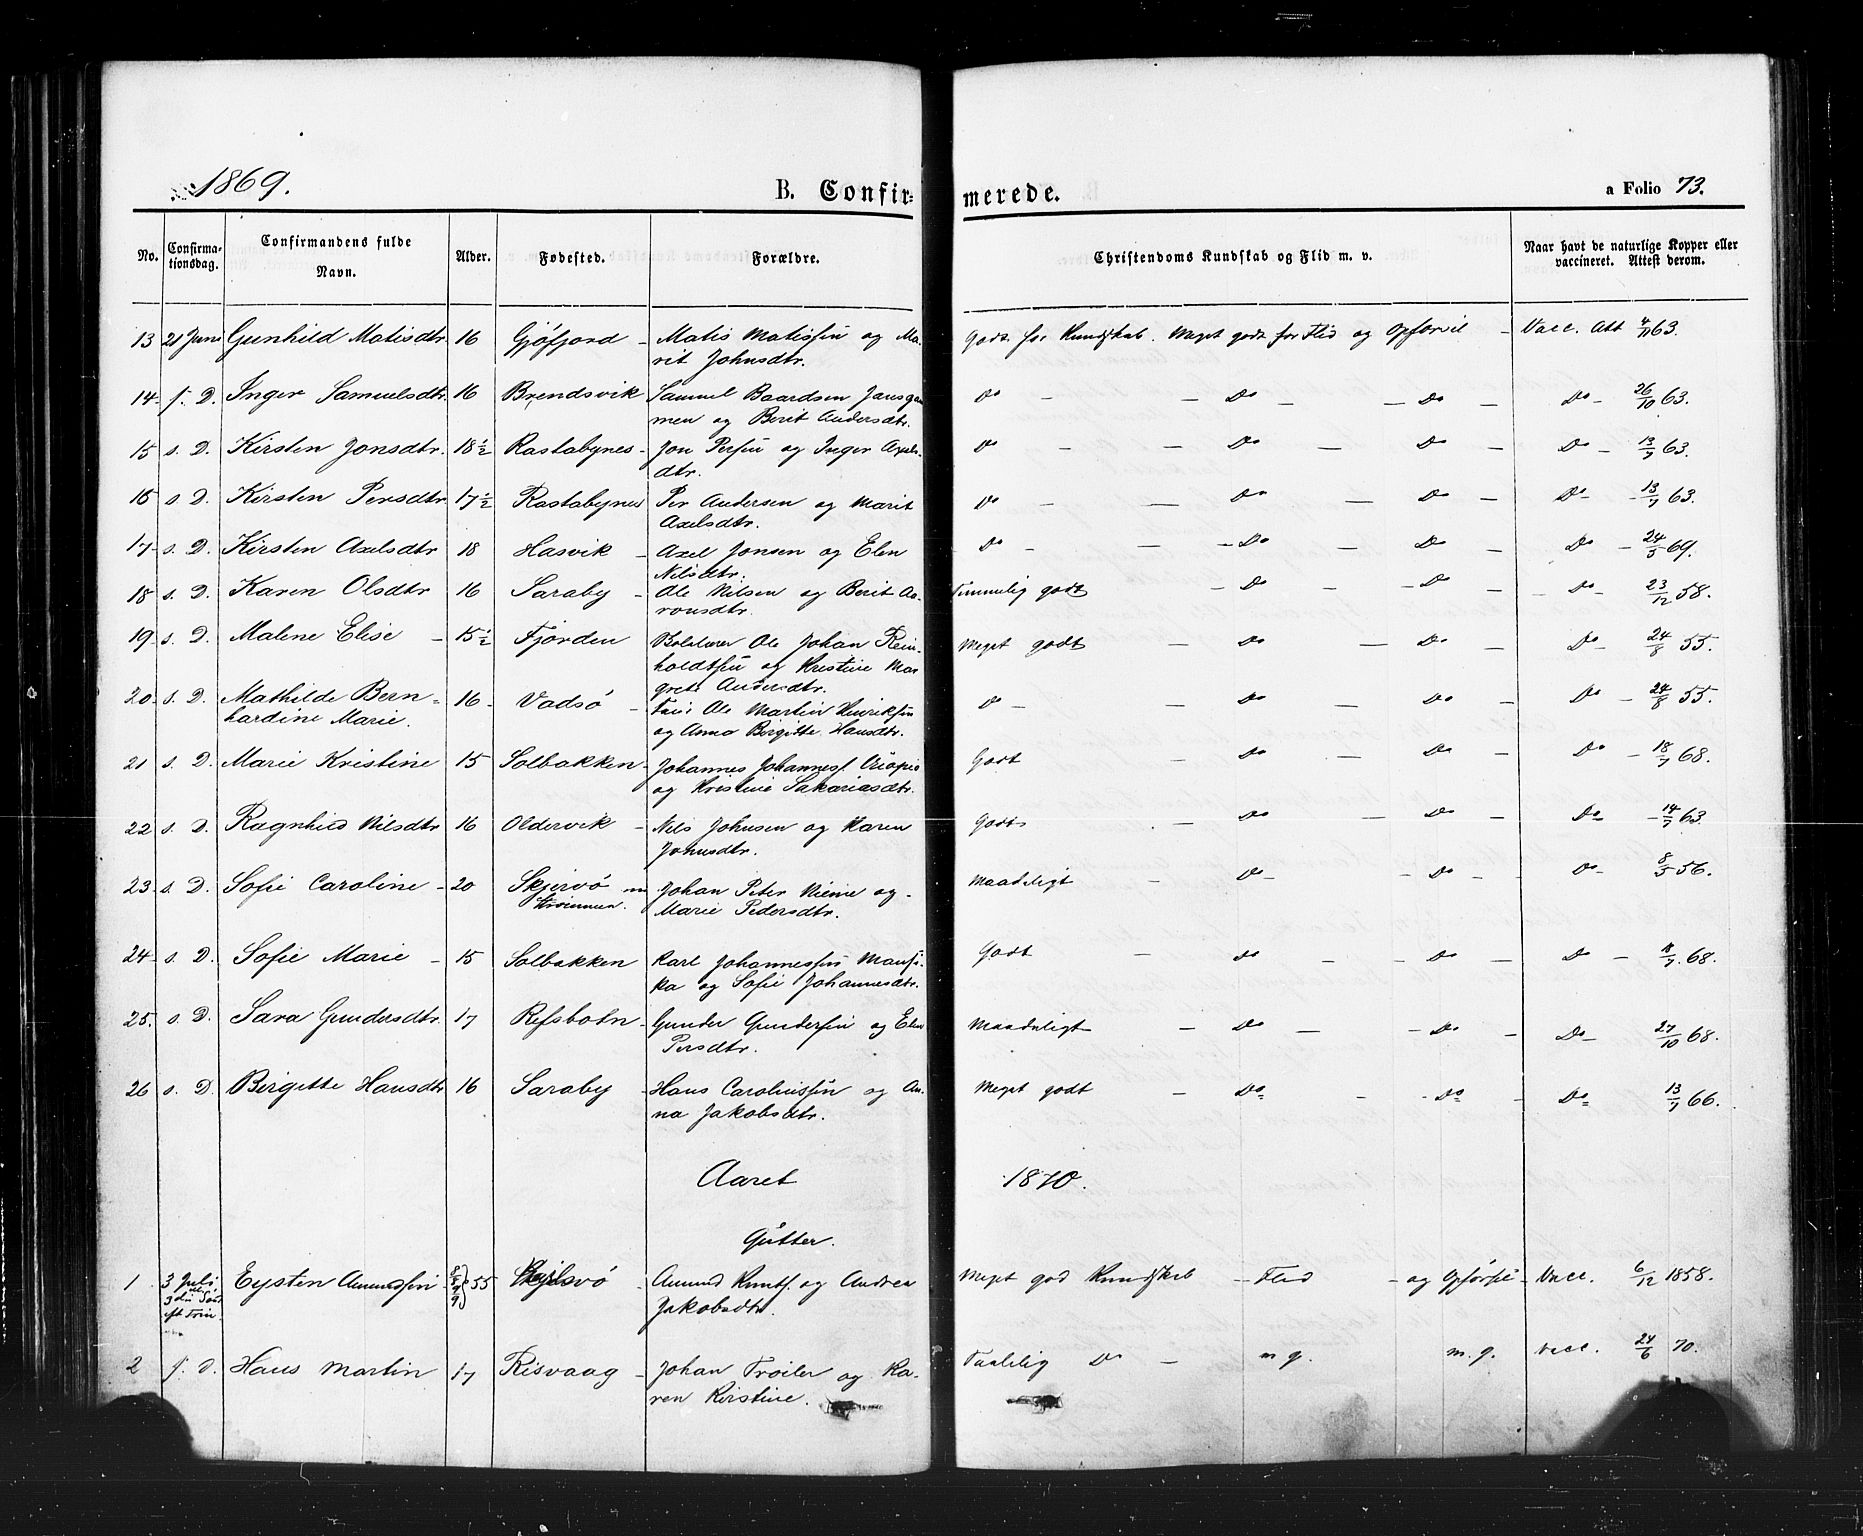 1869. B. Confirmerede. a Folio 73.
No. Confirmationsdag. Confirmandens fulde Navn. Alder. Fødested. Forældre. Christendoms Kundskab og Flid m. v. Naar havt de naturlige Kopper eller vaccineret. Attest derom.
13 21 Juni Gunhild Matisdtr 16 Gjøfjord - Matis Matissen og Ma- Godt for Kundskab. Meget godt for Flid og Opførsel - Vacc. Att 4/11 63.
rit Johnsdtr.
14 s. D. Inger Samuelsdtr. 16 Brendsvik Samuel Baardsen Do - - Do - - Do - Do - 26/10 63.
men og Berit Andersdtr.
15 s. D. Kirsten Jonsdtr. 18 1/2 Rastabynes - Jon Persen og Inger Axels- Do - - Do - - Do - Do - 13/7 63.
dtr.
16 s. D. Kirsten Persdtr 17 1/2 Rastabynes Per Andersen og Marit Do - - Do - Do - Do - 13/7 63.
Axelsdtr.
17 s. D. Kirsten Axelsdtr 18 Hasvik - Axel Jonsen og Elen Do - - - Do - - Do - Do - 24/5 69.
Nilsdtr.
18 s. D. Karen Olsdtr 16 Saraby - Ole Nilsen og Berit Aa- Temmelig godt - Do - - Do - - Do - 23/12 58.
ronsdtr.
19 s. D. Malene Elise - 15 1/2 Fjorden Ole Johan Rein- Meget godt - Do - Do - Do - 24/8 55.
holdtsen og Kristine Mar
grete Andersdtr.
20 s. D. Mathilde Bern- 16 - Vadsø - Ole Martin Henriksen Do - - Do - Do - Do - 24/8 55.
hardine Marie. og Anna Birgitte Hansdtr.
21 s. D. Marie Kristine 15 Solbakken - Johannes Johannesf. Godt - Do - Do - Do - 18/7 68.
og Kristine Sakariasdtr.
22 s. D. Ragnhild Nilsdtr 16 Oldervik - Nils Johnsen og Karen Godt - Do - Do - Do - 14/7 63.
Johnsdtr.
23 s. D. Sofie Caroline - 20 Skjervø Johan Peter Niemi og - Maadeligt - Do - - Do - Do - 8/5 56.
Marie Pedersdtr.
24 s. D. Sofie Marie - 15 Solbakken Karl Johannessen Godt - Do - - Do - Do - 18/7 68.
ka og Sofie Johannesdtr.
25. s. D. Sara Gundersdtr. 17 Refsbotn - Gunder Gundersen og Elen Maadeligt - Do - - Do - Do - 27/10 68.
Persdtr.
26 s. D. Birgitte Hansdtr 16 Saraby - Hans Carolinssen og An- Meget godt - Do - - Do - Do 13/7 66.
na Jakobsdtr.
Aaret 1870.
Gutter.
1 3 Juli Eysten Amundsen 55 Amund Knutf. og Andrea Meget god Kundskab - Flid - og Opførsel - Vacc. 6/12 1858.
Jakobsdtr.
2 s. D. Hans Martin 17 Risvaag - Johan Troiler og Ka- Taalelig Do - m g. m. g. vacc. 24/6 70.
ren Kirstine.